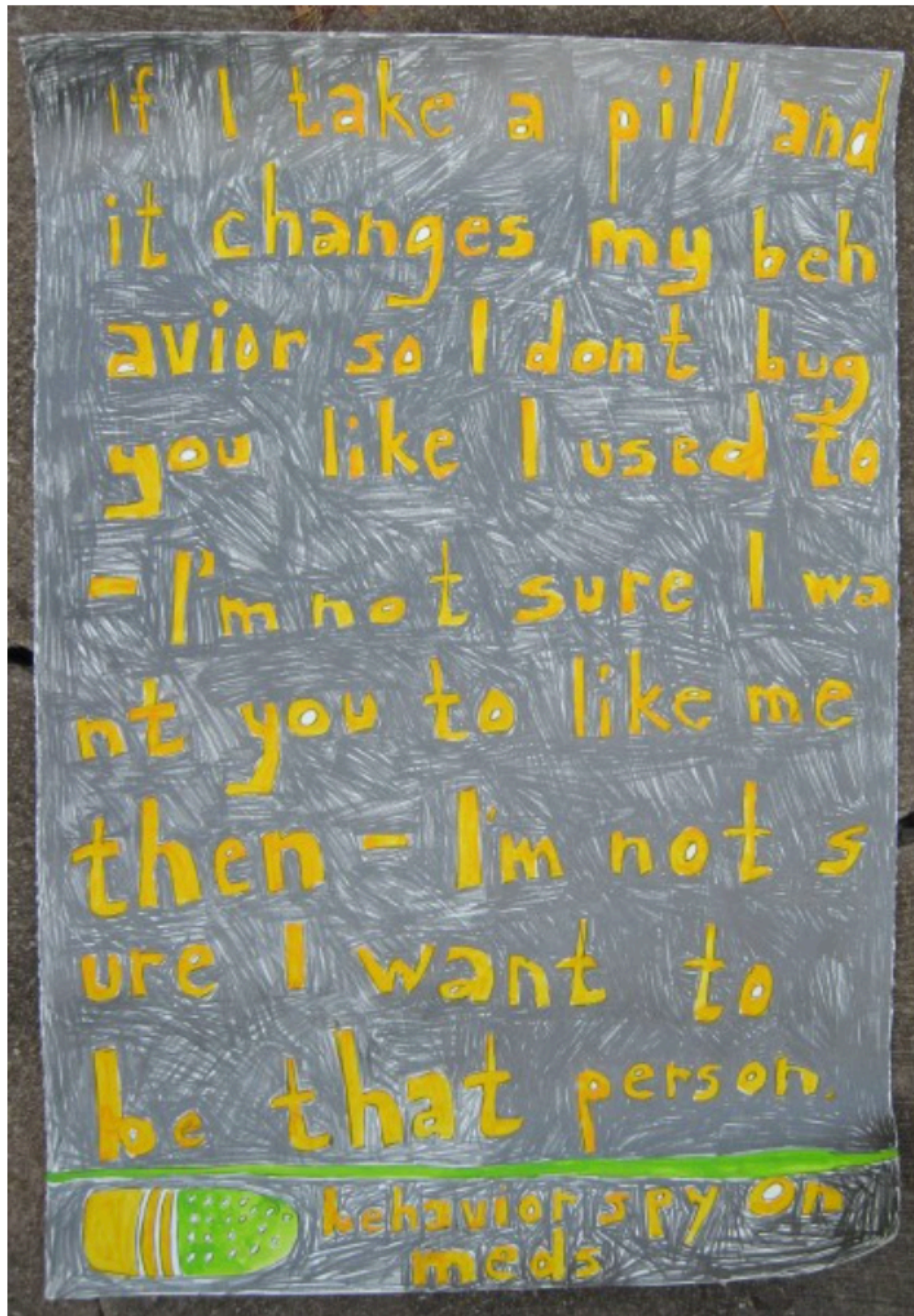 If I take a pill and
it changes my beh
avior so I dont bug
you like I used to
- I'm not sure I wa
nt you to like me
then - I'm not s
ure I want to
be that person.
behavior spy on
meds